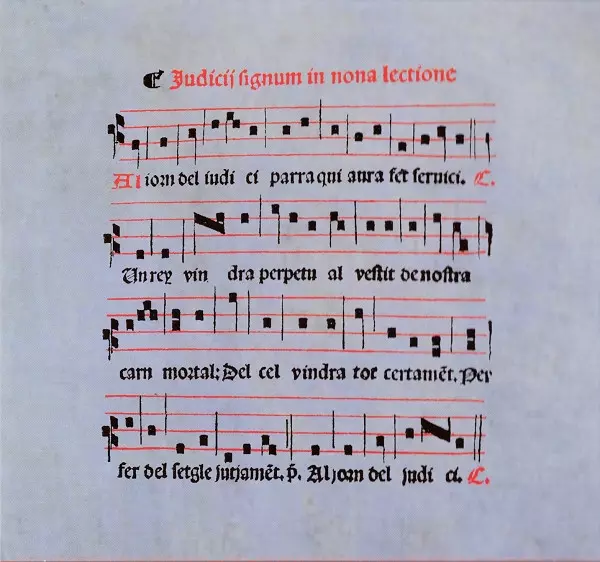 ¶ Judicij signum in nona lectione
Al iorn del iudi ci parra qui aura fet seruici. C.
Un rey vin dra perpetu al vestit de nostra
carn mortal: Del cel vindra tot certamēt. Per
fer del setgle jutjamēt. p̄. Al jorn del judi ci. C.